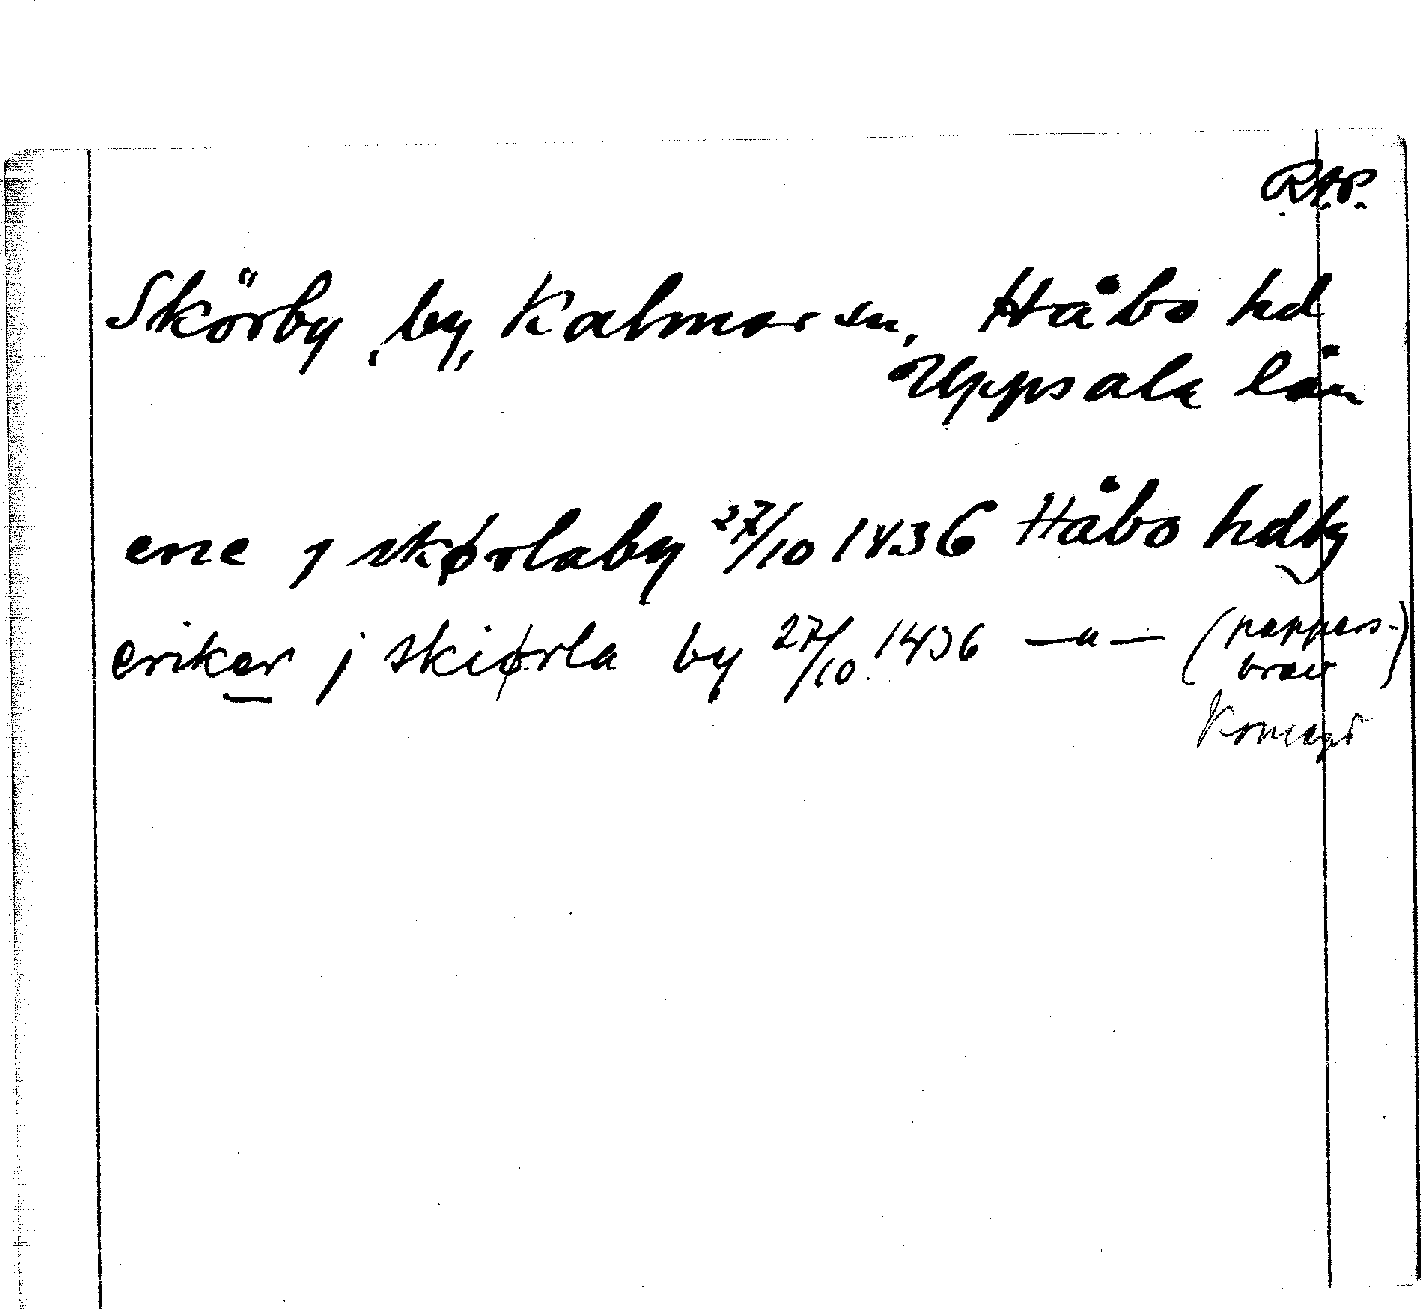 R.A.P.
Skörby, by, Kalmar sn, Håbo hd
Uppsala län
ene j skørlaby 27/10 1436 Håbo hdtg
eriker j skiørla by 27/10 1436 —"— (pappers-
brev)
Koncept